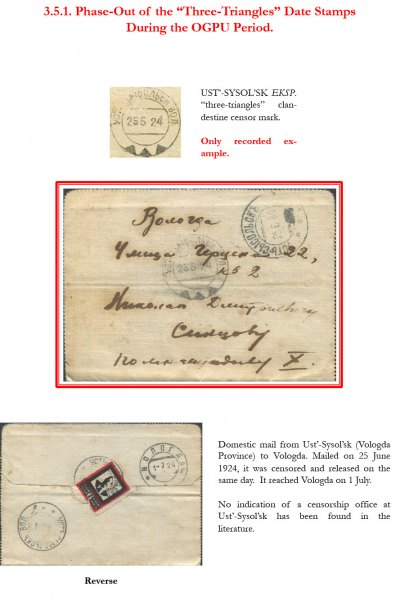 3.5.1. Phase-Out of the “Three-Triangles” Date Stamps
During the OGPU Period.
25 6 24
UST’-SYSOL’SK EKSP.
“three-triangles” clan-
destine censor mark.
Only recorded ex-
ample.
Вологда
Улица
22,
кв 2
Николаю Дмитриевичу
X.
Domestic mail from Ust’-Sysol’sk (Vologda
Province) to Vologda. Mailed on 25 June
1924, it was censored and released on the
same day. It reached Vologda on 1 July.
No indication of a censorship office at
Ust’-Sysol’sk has been found in the
literature.
ВОЛОГДА
1-7 24
Reverse